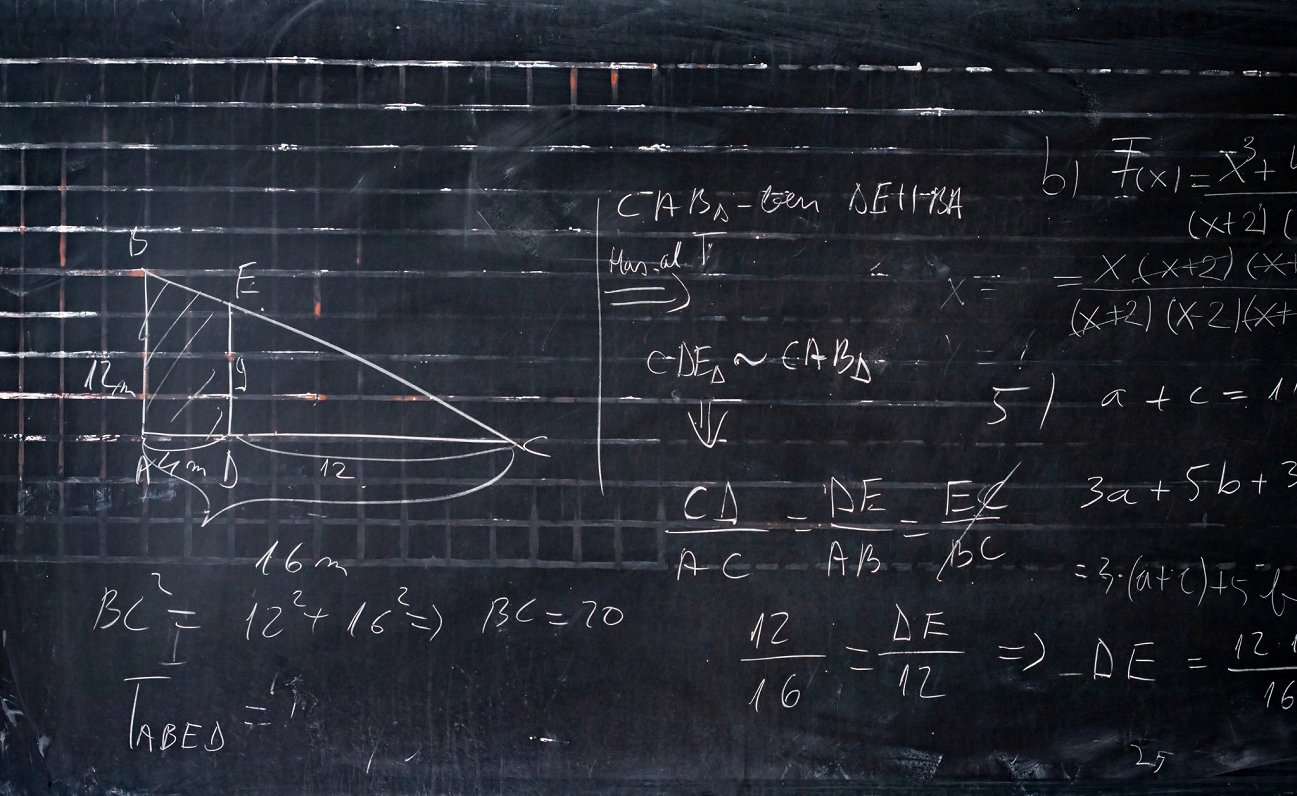 B
E
12m
9
A 4m D
12
C
16 m
BC² = 12² + 16² => BC = 20
T_ABED =
CAB△ - ben DE || BA
Has. al T
=>
CDE△ ~ CAB△
⇓
CD/AC = DE/AB = EC/BC
12/16 = DE/12 => DE = 12·1 / 16
b) F(x) = x³ + 4 / (x+2) (
x =
= x (x+2) (x+ / (x+2) (x-2) (x+
5) a + c = 1
3a + 5b + 3
= 3·(a+c) + 5 b